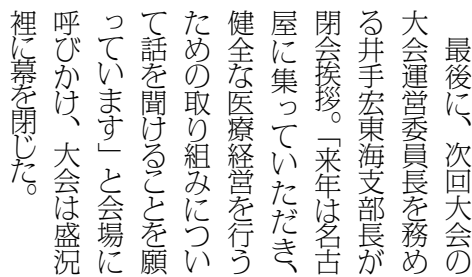 最後に、次回大会の
大会運営委員長を務め
る井手宏東海支部長が
閉会挨拶。「来年は名古
屋に集っていただき、
健全な医療経営を行う
ための取り組みについ
て話を聞けることを願
っています」と会場に
呼びかけ、大会は盛況
裡に幕を閉じた。